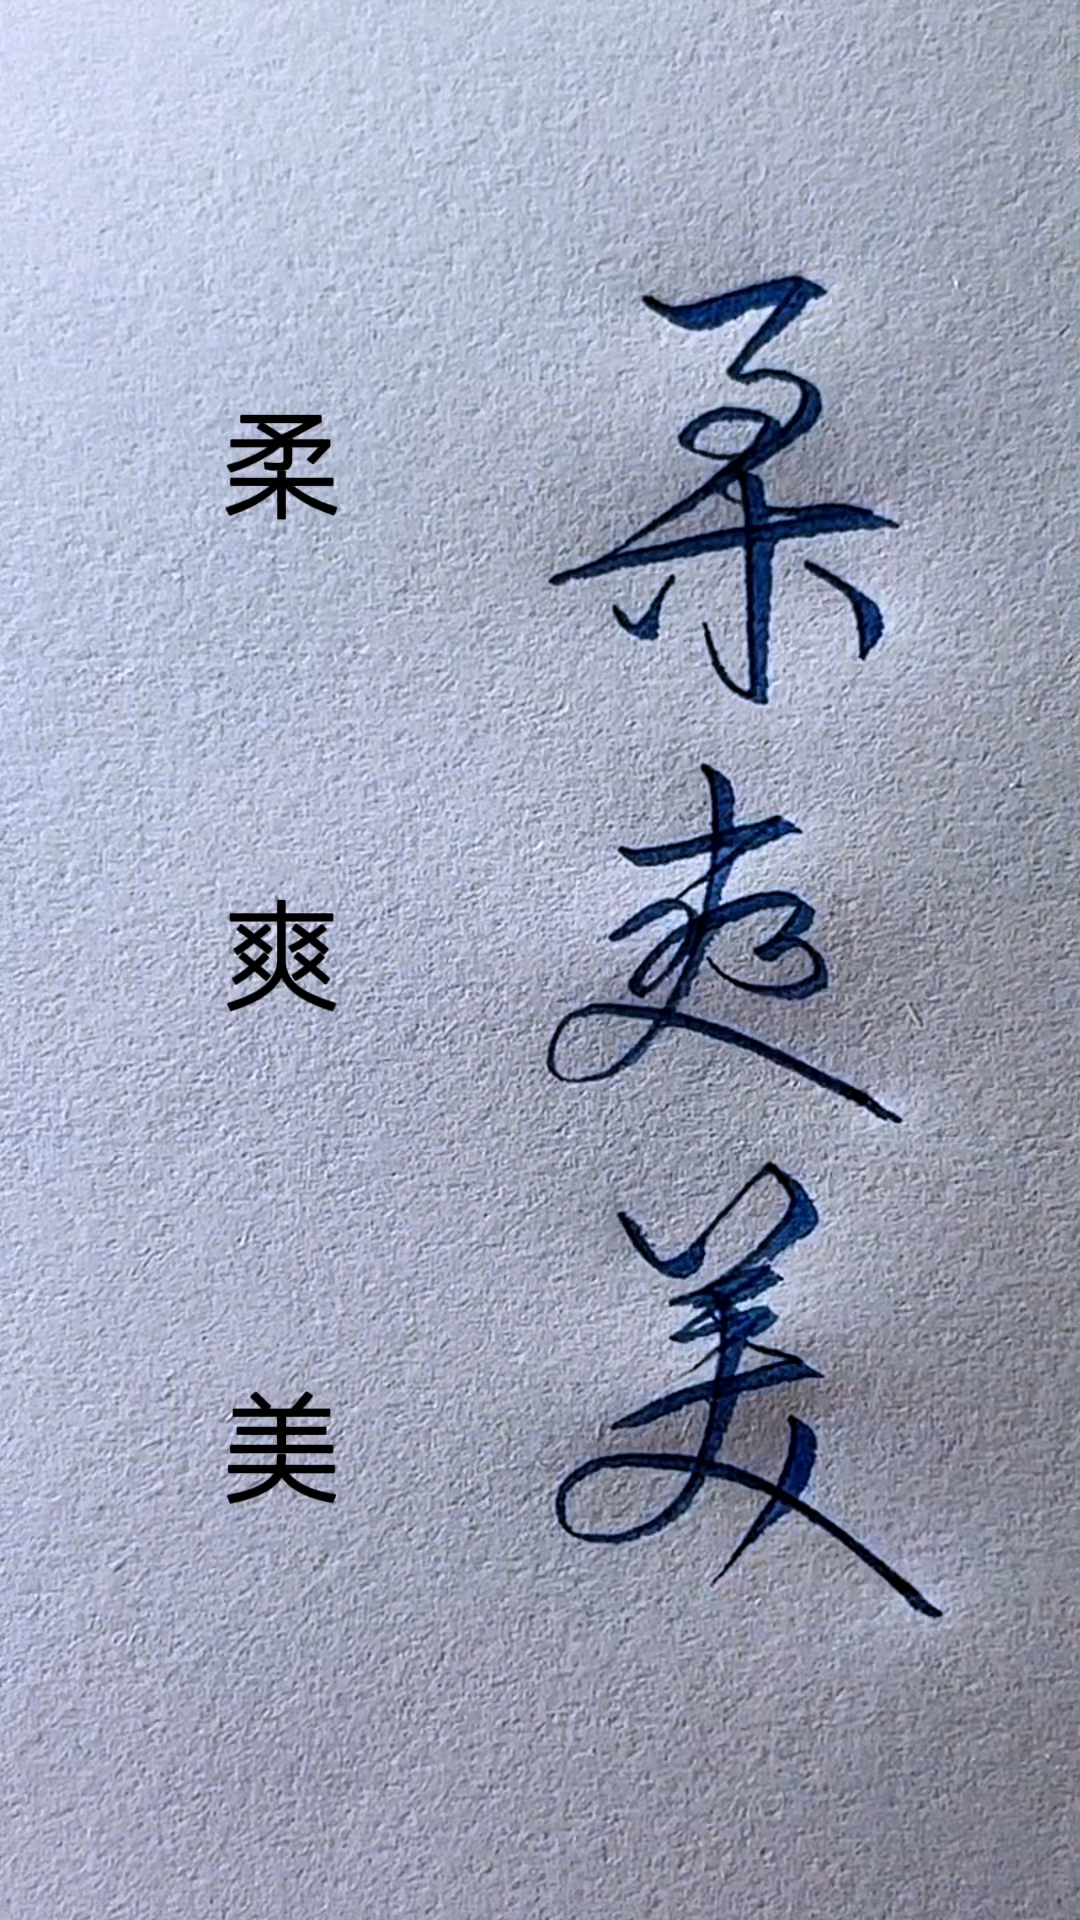 柔 柔
爽 爽
美 美